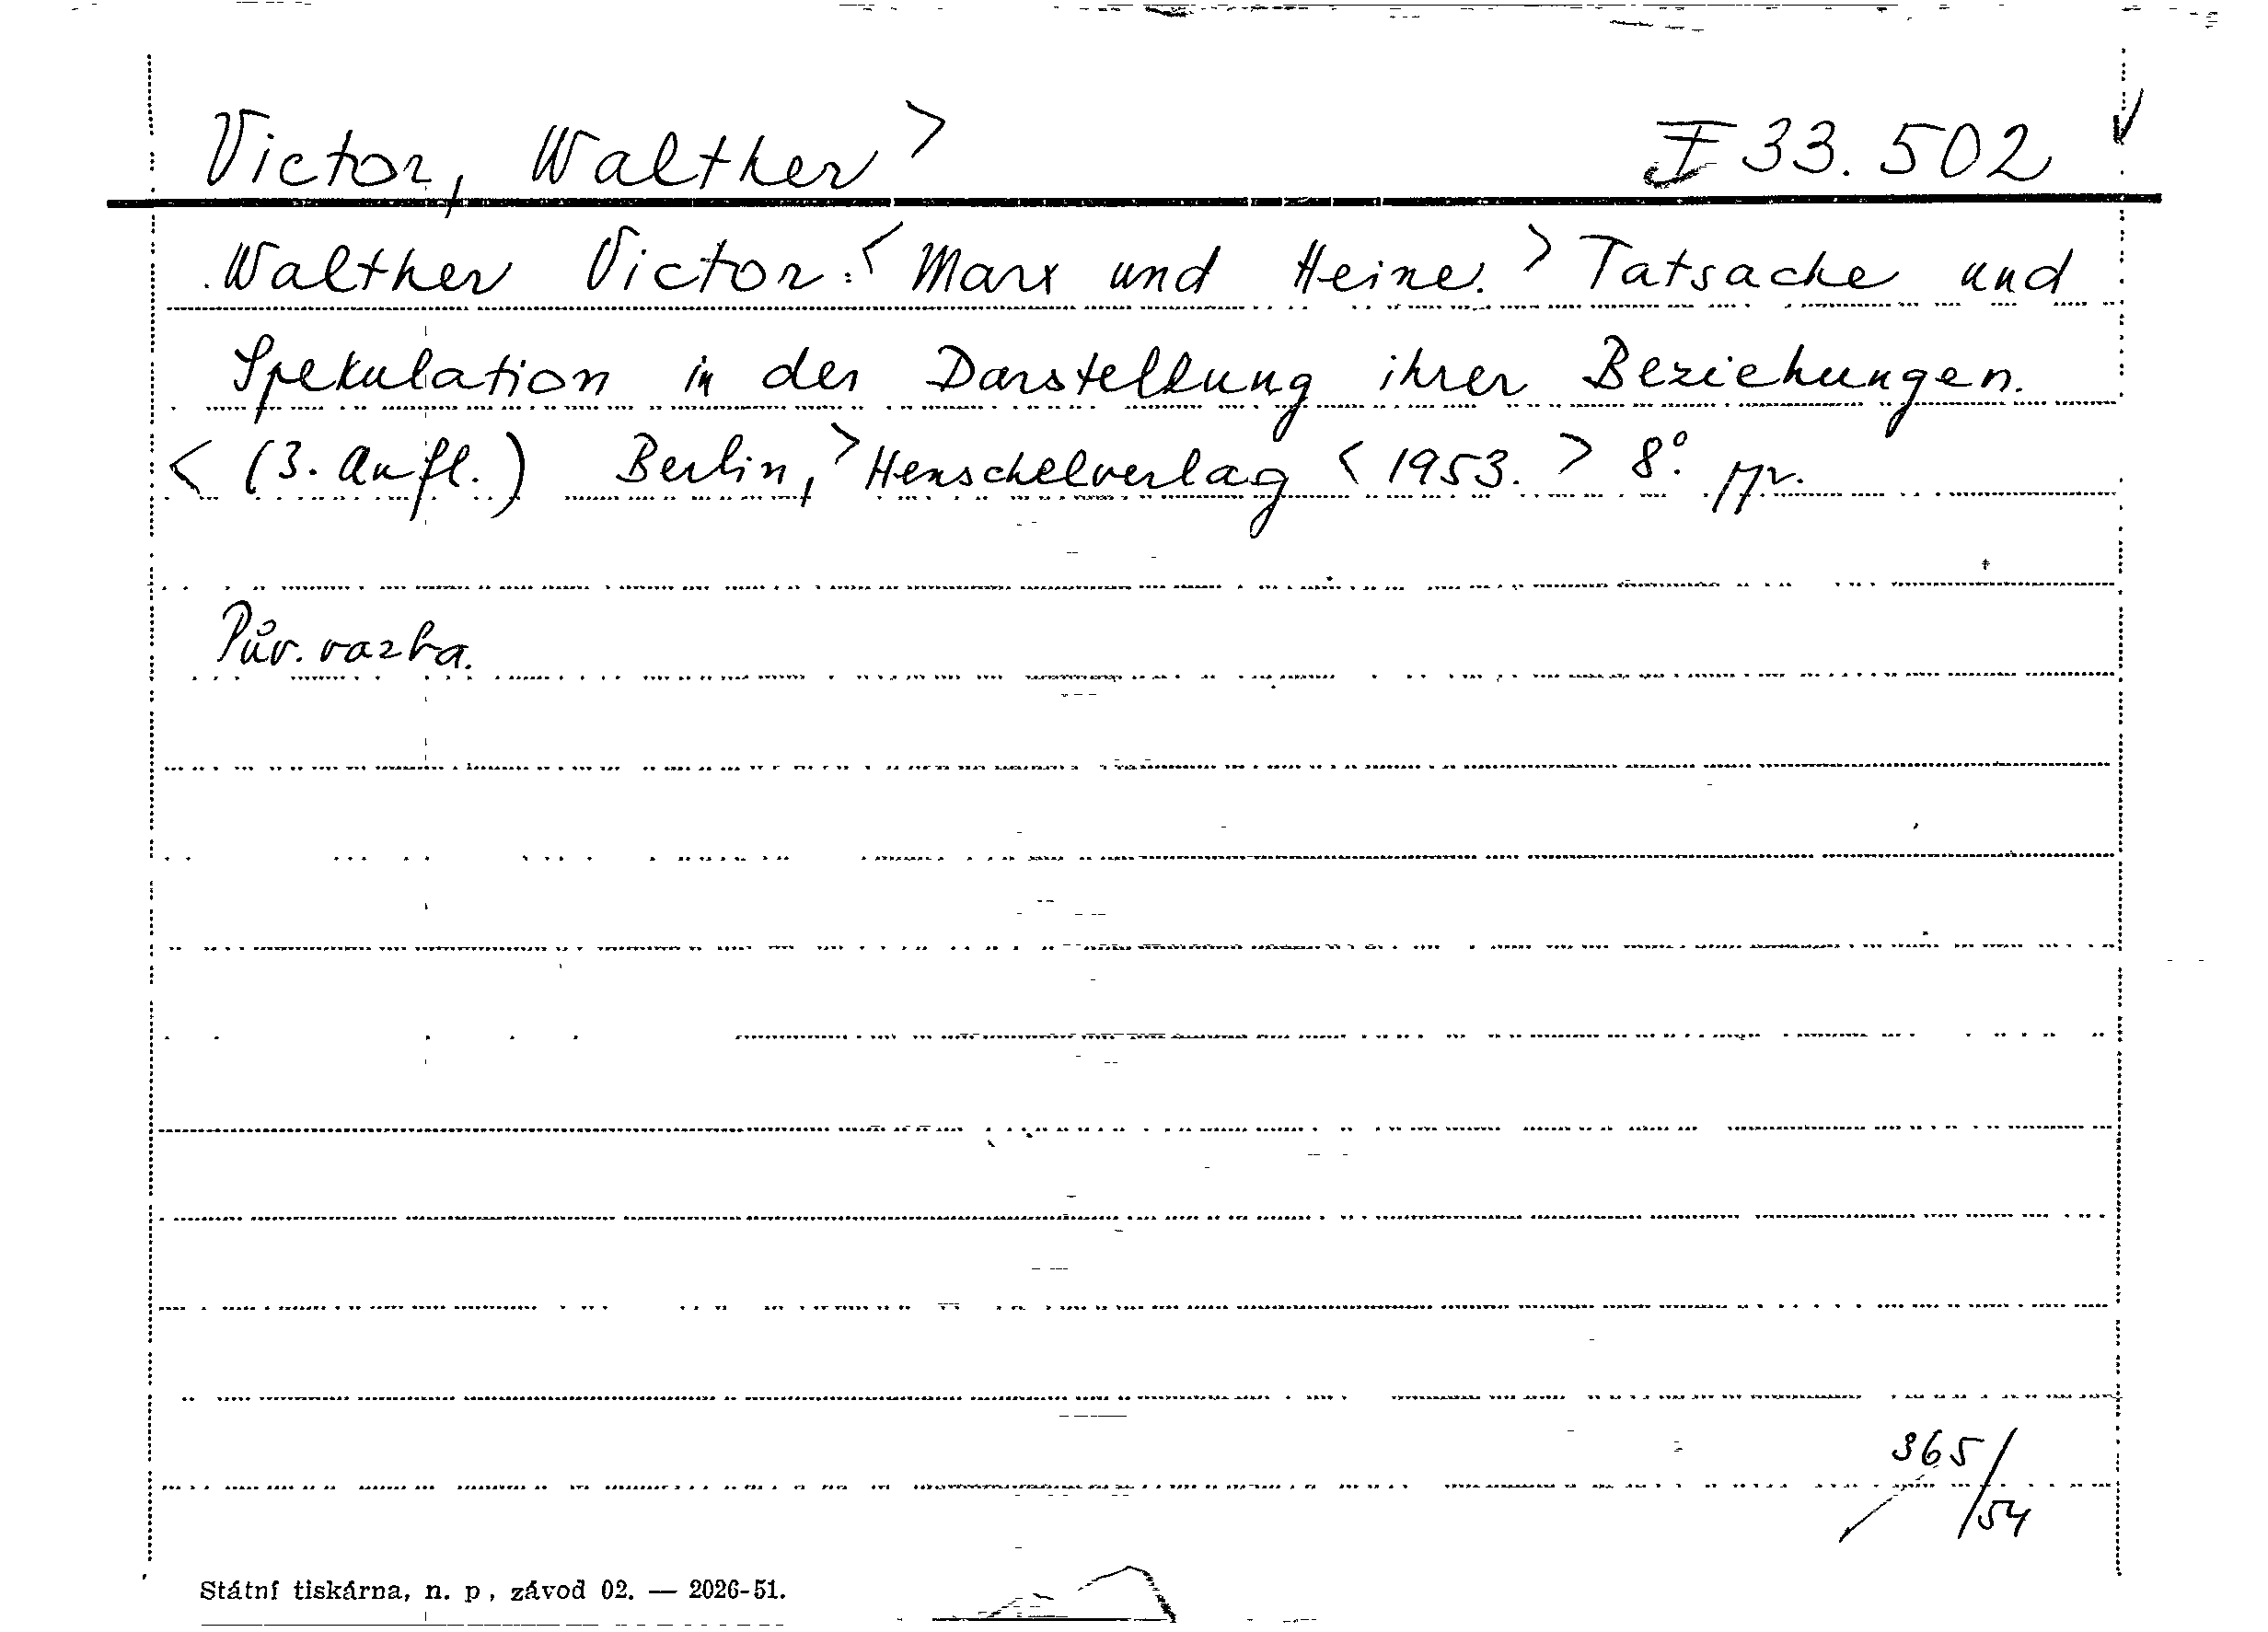 Victor, Walther > I 33.502
Walther Victor: < Marx und Heine. > Tatsache und
Spekulation in der Darstellung ihrer Beziehungen.
< (3. Aufl.) Berlin, > Henschelverlag < 1953. > 8°.
Pův. vazba.
365/54
Státní tiskárna, n. p, závod 02. — 2026-51.